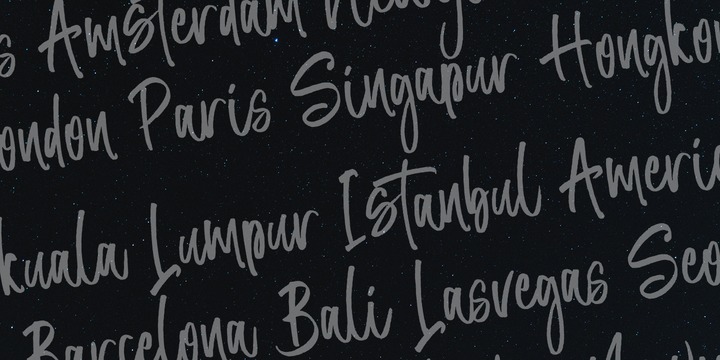 s Amsterdam Newyo
ondon Paris Singapur Hongko
kuala Lumpur Istanbul Americ
Barcelona Bali Lasvegas Seo